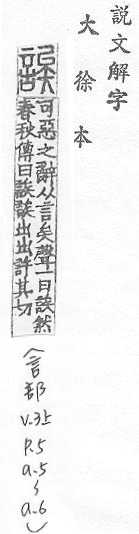 説文解字
大徐本
誒
可惡之辭从言矣聲一曰誒然
春秋傳曰誒誒出出許其切
(言部 V.3上 P.5 a.5~a.6)